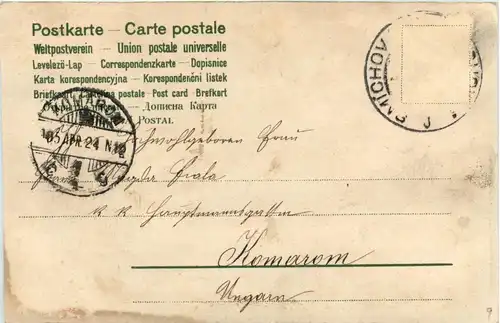 Postkarte — Carte postale
Weltpostverein — Union postale universelle
Levelező-Lap — Correspondenzkarte — Dopisnice
Karta korespondencyjna — Korespondenčni listek
Briefkart postale — Post card — Brefkort
Дописна Карта
POSTAL
SMICHOV
KOMÁROM
05 APR. 24 N. 12
Hochwohlgeboren Frau
k. k. Hauptmannsgattin
Komarom
Ungarn